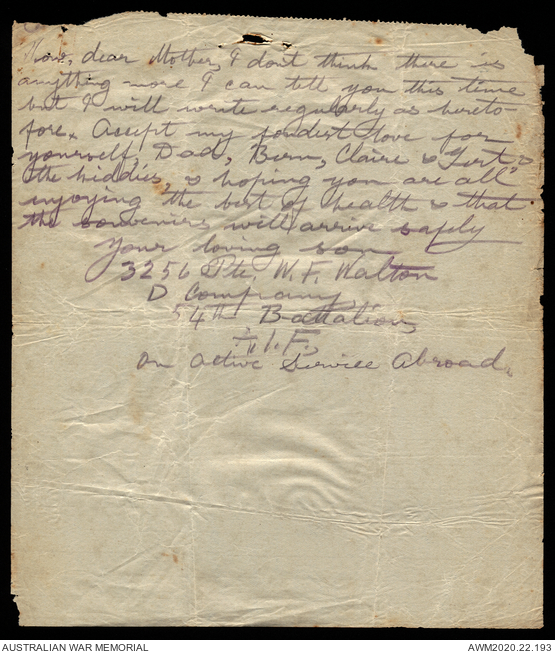 Now, dear Mother, I don't think there is
anything more I can tell you this time
but I will write regularly as hereto-
fore. Accept my fondest love for
yourself, Dad, Bern, Claire & Gert &
the kiddies, & hoping you are all
enjoying the best of health & that
the souvenirs will arrive safely
Your loving son
3256 Pte, W. F. Walton
D Company
54th Battalion,
A.I.F.,
On Active Service Abroad.
AUSTRALIAN WAR MEMORIAL
AWM2020.22.193